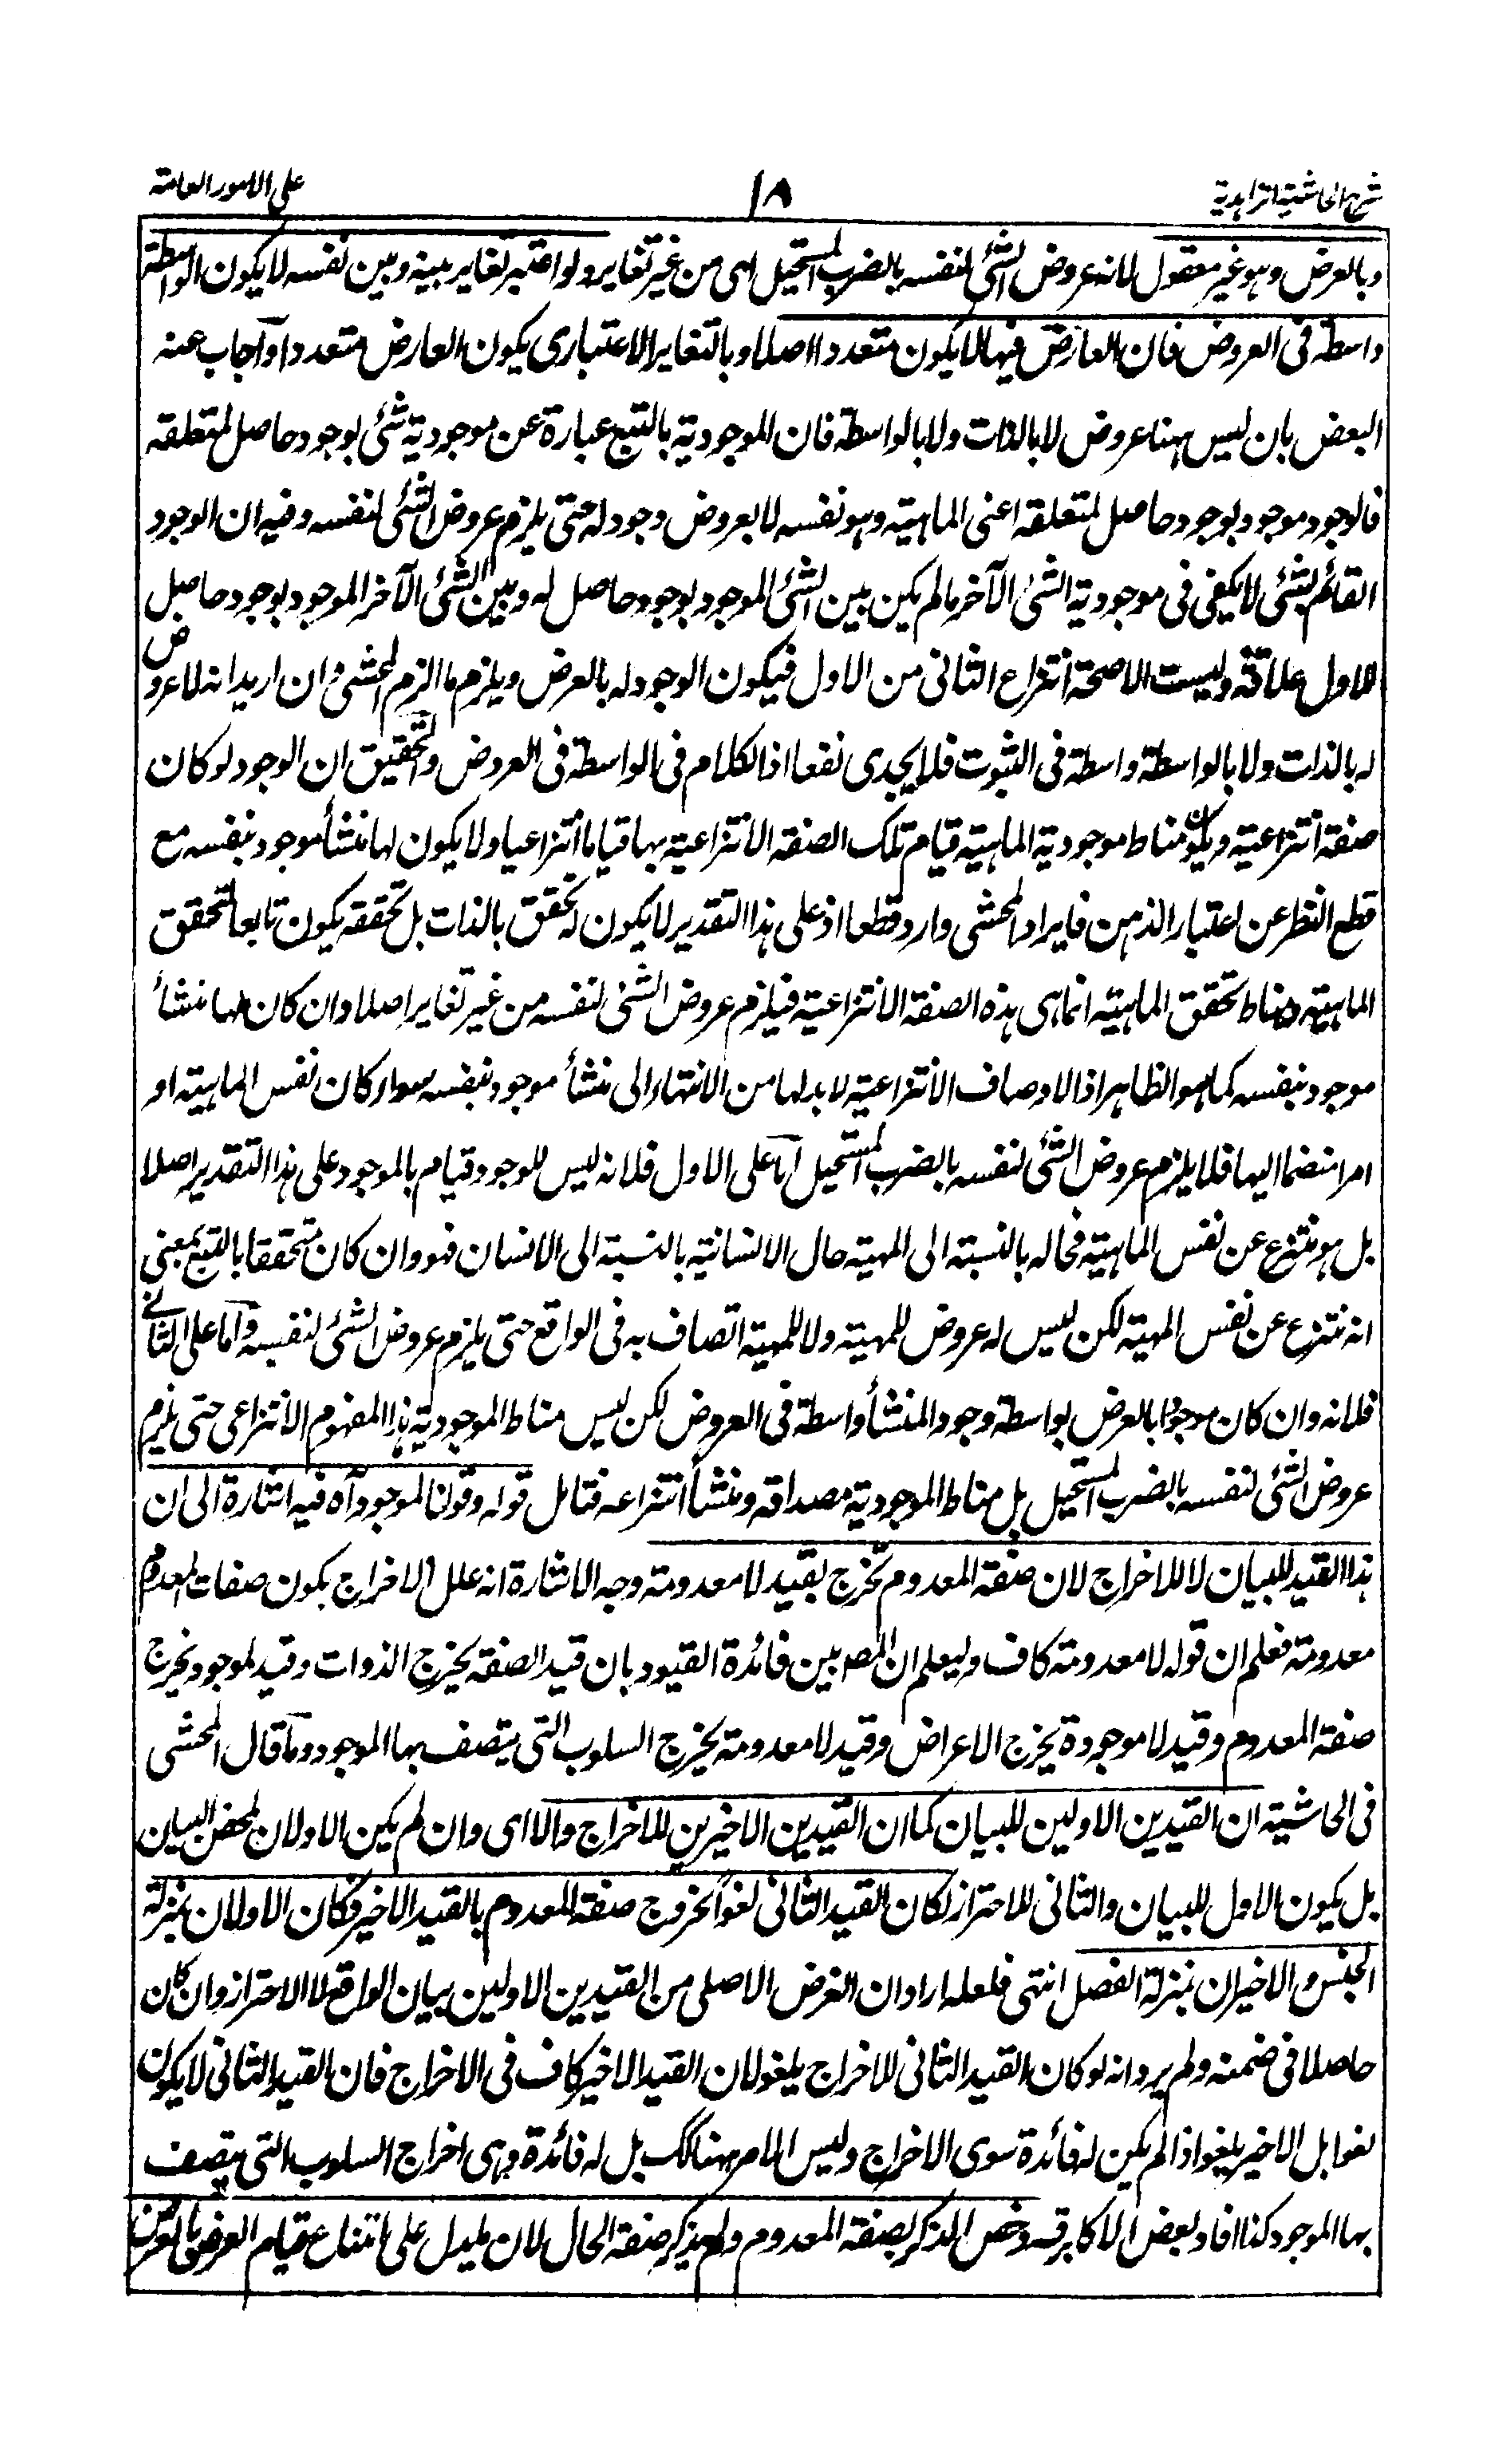 شرح الحاشية الزاهدية ١٨ على الامور العامة
وبالعرض وهو غير معقول لانه عروض الشئ لنفسه بالضرب المستحيل اى من غير تغاير ولو اعتبر تغاير بينه وبين نفسه لا يكون الواسطة
واسطة فى العروض فان العارض فيها لا يكون متعددا اصلا وبالتغاير الاعتبارى يكون العارض متعددا واجاب عنه
البعض بان ليس ههنا عروض لا بالذات ولا بالواسطة فان الموجودية بالتبع عبارة عن موجودية شئ بوجود حاصل لمتعلقه
فالوجود موجود بوجود حاصل لمتعلقه اعنى الماهية وهو نفسه لا بعروض وجود له حتى يلزم عروض الشئ لنفسه وفيه ان الوجود
القائم بشئ لا يكفى فى موجودية الشئ الآخر ما لم يكن بين الشئ الموجود بوجود حاصل له وبين الشئ الآخر الموجود بوجود حاصل
للاول علاقة وليست الا صحة انتزاع الثانى من الاول فيكون الوجود له بالعرض ويلزم ما الزم المحشى وان اريد انه لا عروض
له بالذات ولا بالواسطة واسطة فى الثبوت فلا يجدى نفعا اذ الكلام فى الواسطة فى العروض والتحقيق ان الوجود لو كان
صفة انتزاعية ويكون مناط موجودية الماهية قيام تلك الصفة الانتزاعية بها قياما انتزاعيا ولا يكون لها منشأ موجود بنفسه مع
قطع النظر عن اعتبار الذهن فايراد المحشى وارد قطعا اذ على هذا التقدير لا يكون له تحقق بالذات بل تحققه يكون تابعا لتحقق
الماهية ومناط تحقق الماهية انما هى هذه الصفة الانتزاعية فيلزم عروض الشئ لنفسه من غير تغاير اصلا وان كان لها منشأ
موجود بنفسه كما هو الظاهر اذ الاوصاف الانتزاعية لا بد لها من الانتهاء الى منشأ موجود بنفسه سواء كان نفس الماهية او
امرا منضما اليها فلا يلزم عروض الشئ لنفسه بالضرب المستحيل اما على الاول فلانه ليس للوجود قيام بالموجود على هذا التقدير اصلا
بل هو منتزع عن نفس الماهية فحاله بالنسبة الى المهية حال الانسانية بالنسبة الى الانسان فهو وان كان متحققا بالتبع بمعنى
انه منتزع عن نفس المهية لكن ليس له عروض للمهية ولا للمهية اتصاف به فى الواقع حتى يلزم عروض الشئ لنفسه واما على الثانى
فلانه وان كان موجودا بالعرض بواسطة وجود المنشأ واسطة فى العروض لكن ليس مناط الموجودية هذا المفهوم الانتزاعى حتى يلزم
عروض الشئ لنفسه بالضرب المستحيل بل مناط الموجودية مصداقه ومنشأ انتزاعه فتامل قوله وقولنا لموجود آه فيه اشارة الى ان
هذا القيد للبيان لا للاخراج لان صفة المعدوم تخرج بقيد لا معدومة وجه الاشارة انه علل الاخراج بكون صفات المعدوم
معدومة فعلم ان قوله لا معدومة كاف وليعلم ان المص بين فائدة القيود بان قيد الصفة يخرج الذوات وقيد لموجود يخرج
صفة المعدوم وقيد لا موجودة يخرج الاعراض وقيد لا معدومة يخرج السلوب التى يتصف بها الموجود وما قال المحشى
فى الحاشية ان القيدين الاولين للبيان كما ان القيدين الاخيرين للاخراج والا اى وان لم يكن الاولان لمحض البيان
بل يكون الاول للبيان والثانى للاحتراز لكان القيد الثانى لغوا لخروج صفة المعدوم بالقيد الاخير فكان الاولان بمنزلة
الجنس والاخيران بمنزلة الفصل انتهى فلعله اراد ان الغرض الاصلى من القيدين الاولين بيان الواقع لا الاحتراز وان كان
حاصلا فى ضمنه ولم يرد انه لو كان القيد الثانى للاخراج يلغو لان القيد الاخير كاف فى الاخراج فان القيد الثانى لا يكون
لغوا بل الاخير يلغو اذا لم يكن له فائدة سوى الاخراج وليس الامر ههنا كك بل له فائدة وهى اخراج السلوب التى يتصف
بها الموجود كذا افاد بعض الاكابر قه وخص الذكر بصفة المعدوم ولم يذكر صفة الحال لان ما يدل على امتناع قيام العرض بالعرض